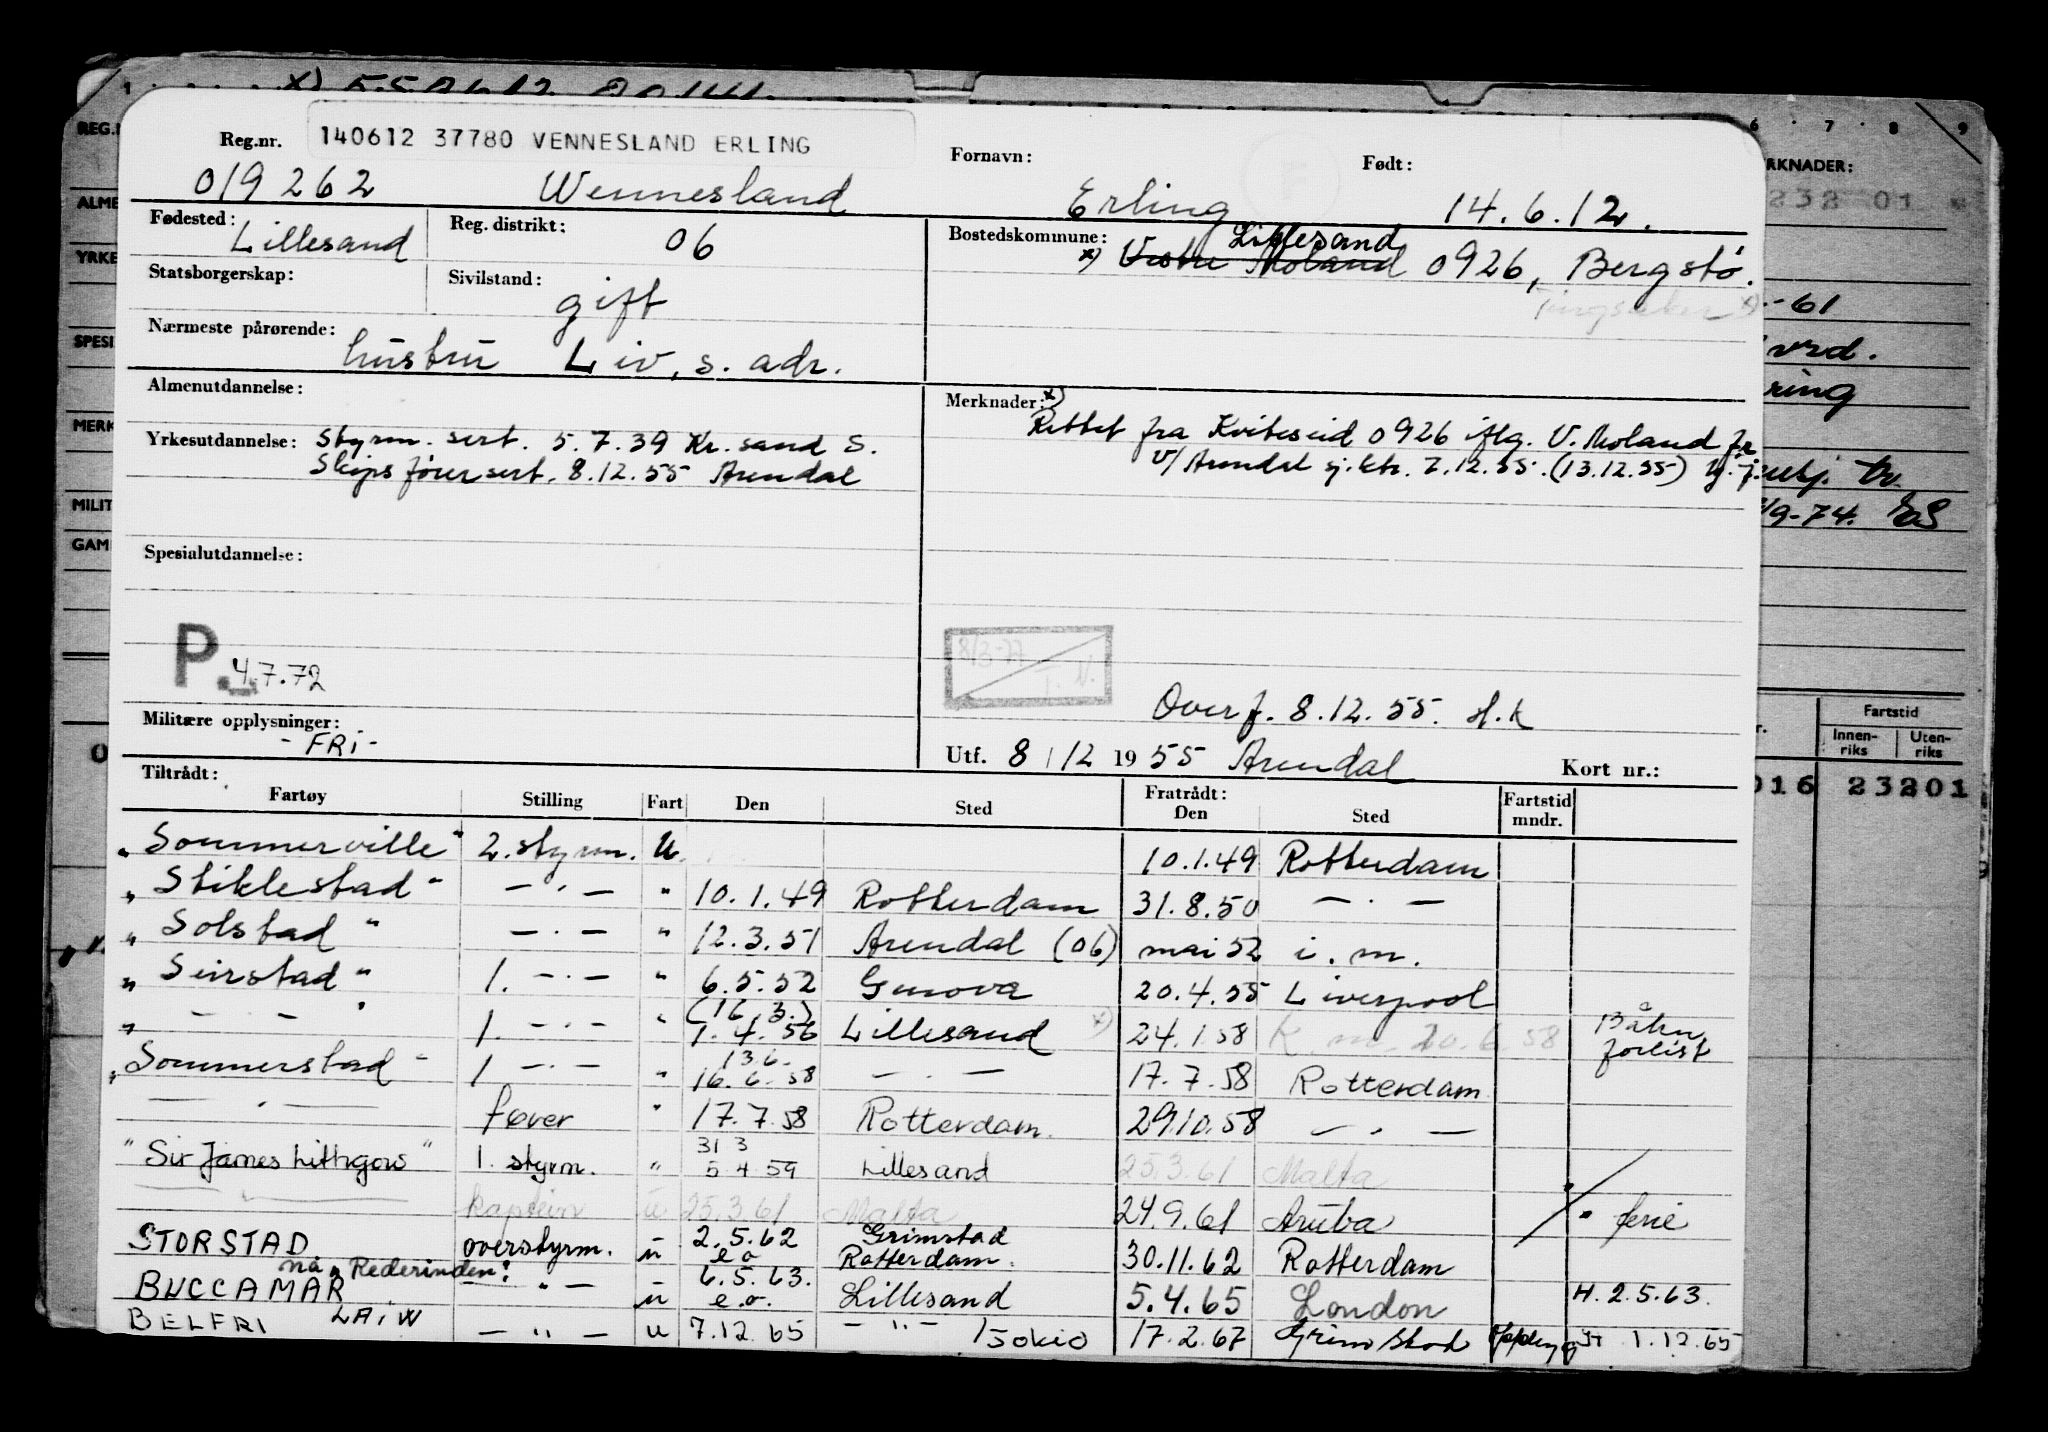 x) 550612 20141
Reg.nr. 140612 37780 VENNESLAND ERLING Fornavn: Født:
019262 Wennesland Erling 14.6.12.
Fødested: Lillesand Reg. distrikt: 06 Bostedskommune: Lillesand
x) Vestre Moland 0926, Bergstø.
Statsborgerskap: Sivilstand: gift
Nærmeste pårørende: hustru Liv, s. adr.
Almenutdannelse:
Merknader: x)
Rettet fra Kviteseid 0926 iflg. V. Moland f.r.
v/ Arendal sj.ktr. 7.12.55. (13.12.55)
Yrkesutdannelse: Styrm. sert. 5.7.39 Kr.sand S.
Skipsførersert. 8.12.55 Arendal
Spesialutdannelse:
P. 4.7.72
8/3-77
Overf. 8.12.55. H.K
Militære opplysninger:
- FRI -
Utf. 8/12 1955 Arendal Kort nr.:
Tiltrådt: Fratrådt:
Fartøy Stilling Fart Den Sted Den Sted Fartstid mndr.
"Sommerville" 2. styrm. U. 10.1.49 Rotterdam
"Stiklestad" — · — " 10.1.49 Rotterdam 31.8.50 — · —
"Solstad" — · — " 12.3.51 Arendal (06) mai 52 i. m.
"Seirstad" 1. — · — " 6.5.52 Genova 20.4.55 Liverpool
" — · — " 1. — · — " (16 3.) 1.4.56 Lillesand x) 24.1.58 K. m. 20.6.58 Båten forlist
"Sommerstad" 1 — · — " 13 6. 16.6.58 — · — 17.7.58 Rotterdam
— · — fører " 17.7.58 Rotterdam. 29.10.58 — · —
"Sir James Lithgow" 1. styrm. " 31 3 5 4 59 Lillesand 25.3.61 Malta
kaptein u 25.3.61 Malta 24.9.61 Aruba " ferie
STORSTAD overstyrm. u 2.5.62 e.o Grimstad Rotterdam. 30.11.62 Rotterdam
nå "Rederinden"
BUCCAMAR — " — u 6.5.63. e.o. Lillesand 5.4.65 London H. 2.5.63.
BELFRI LAIW — " — u 7.12.65 — " — 17.2.67 Grimstad H 1.12.65
REG.
ALME
YRKE
SPESI
MERK
MILIT
GAM
6 7 8 9
RKNADER:
232 01
-61
ring
9-74.
Fartstid
Innenriks Utenriks
016 23201